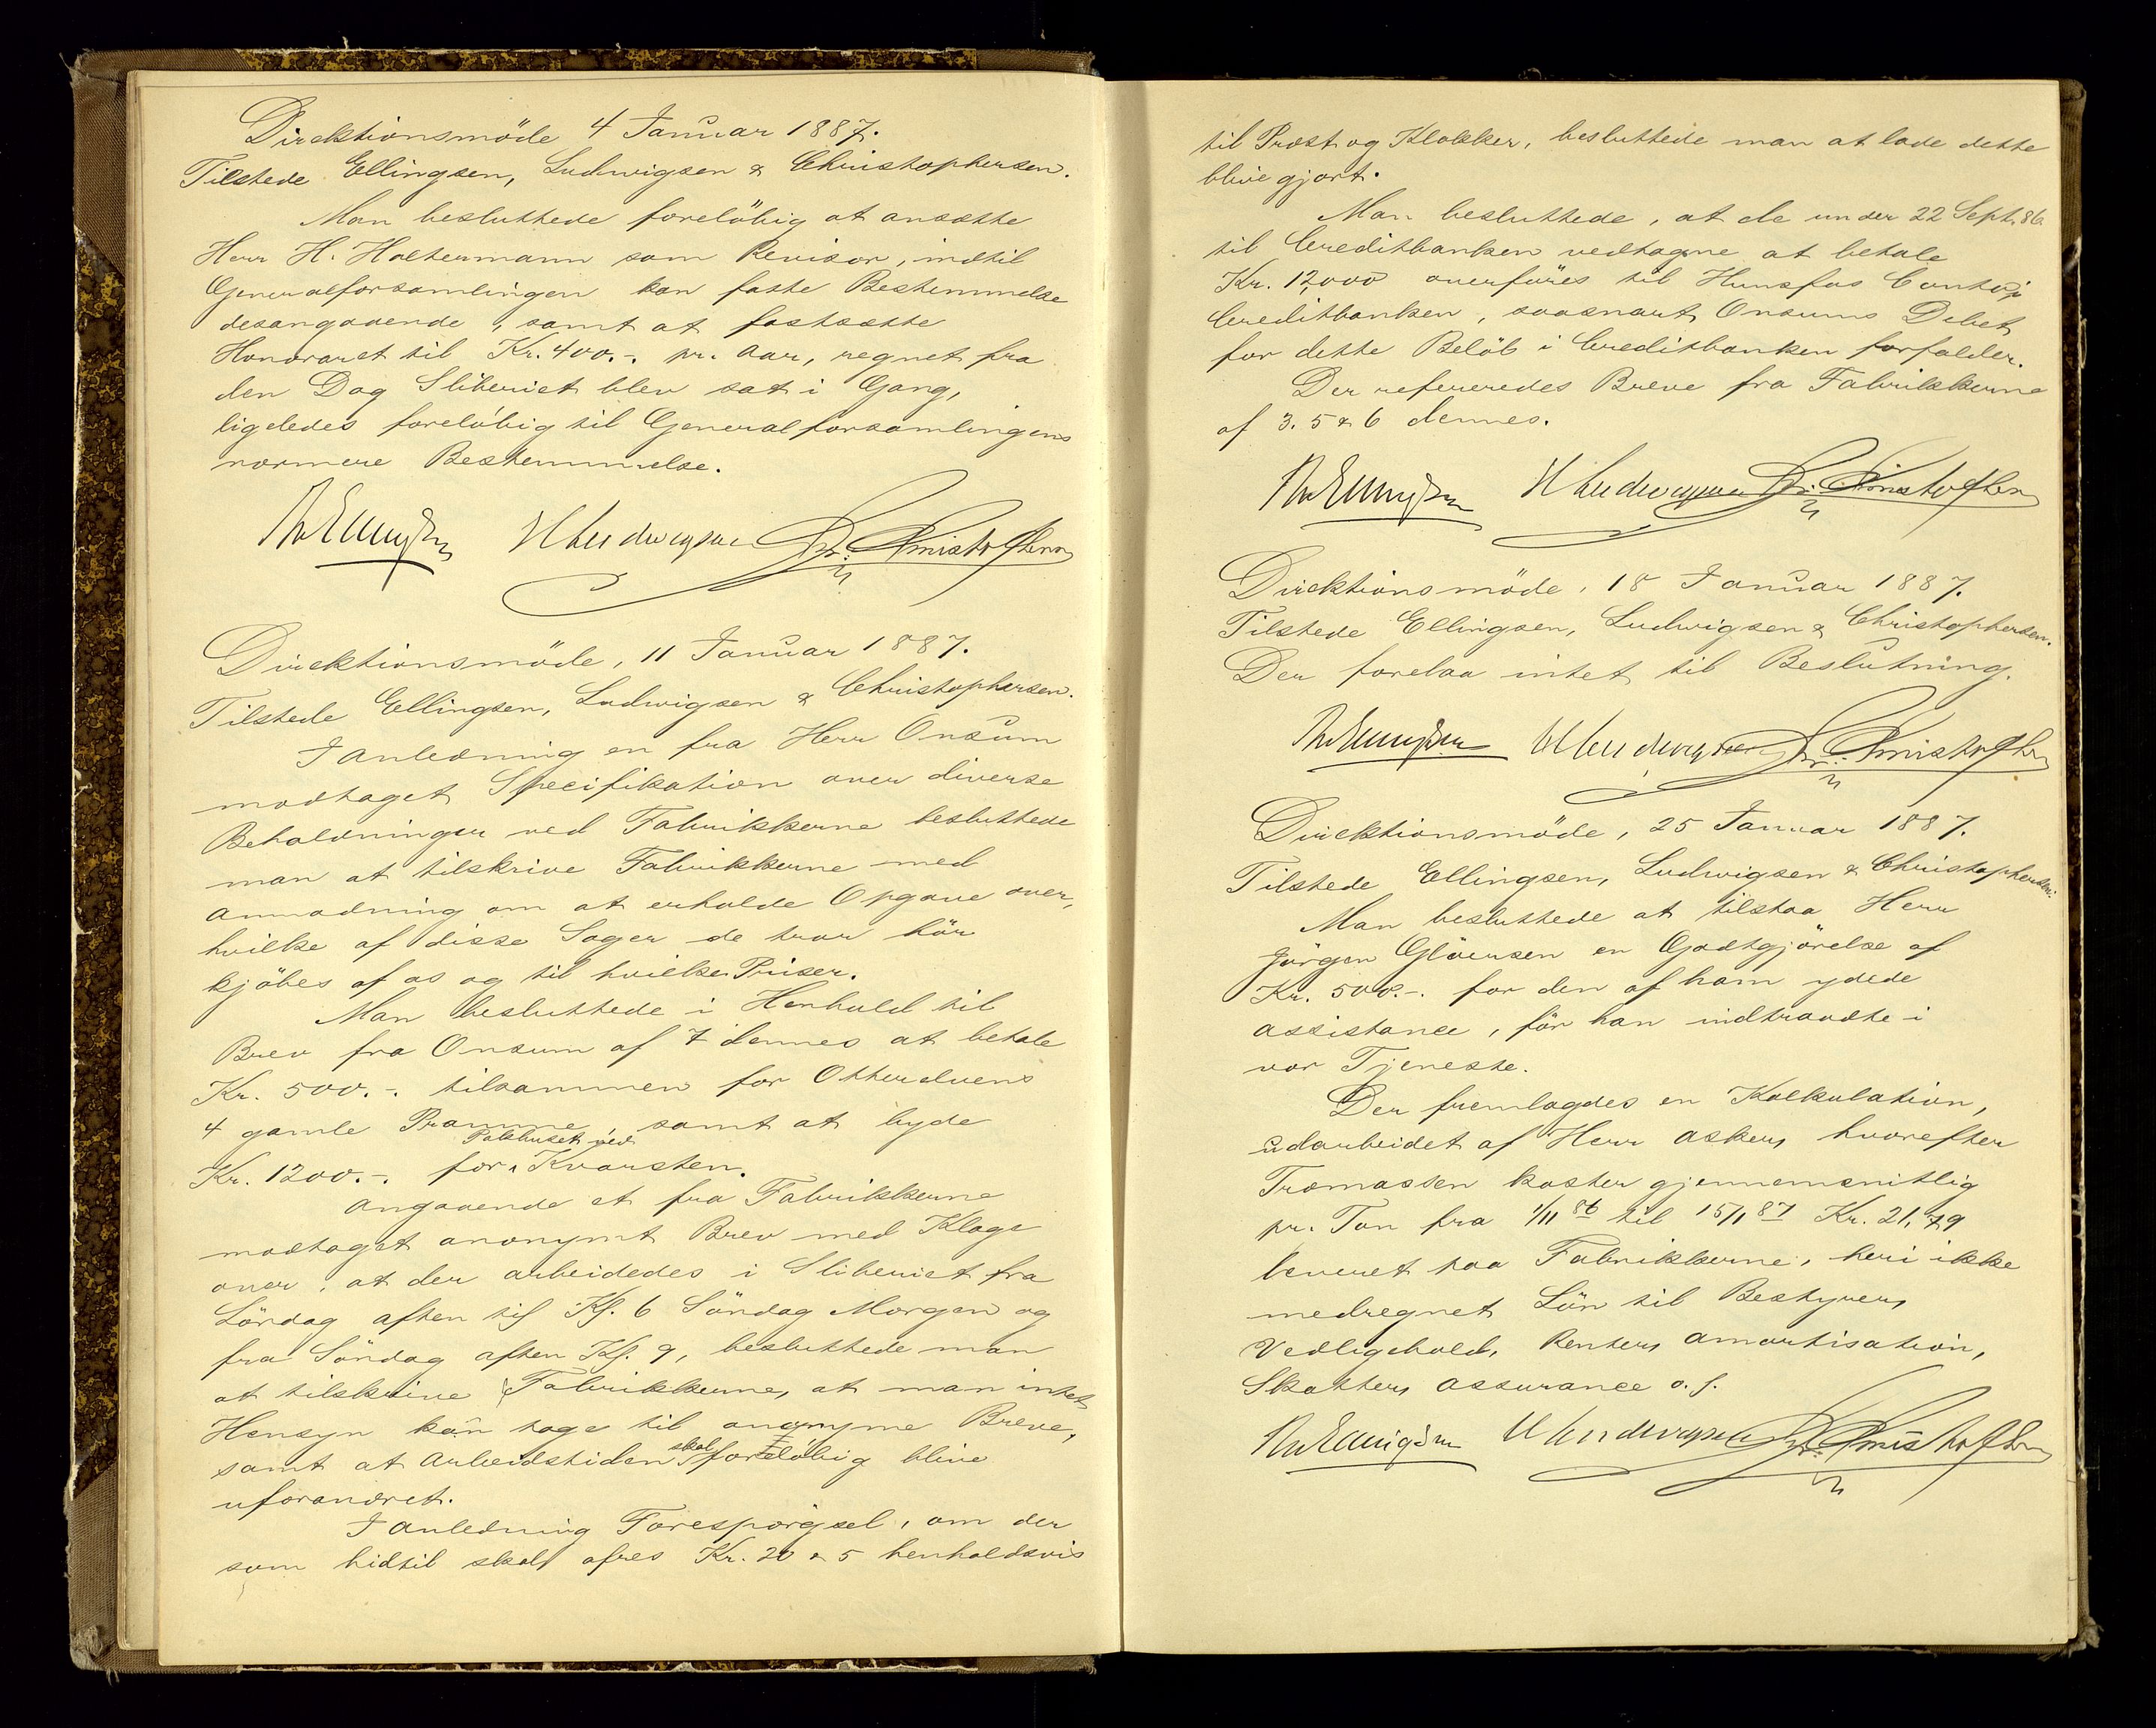 Direktionsmöde 4 Januar 1887.
Tilstede Ellingsen, Ludwigsen & Christophersen.
Man besluttede foreløbig at ansætte
Herr H. Holtermann som Revisor, indtil
Generalforsamlingen kan fatte Bestemmelse
desangaaende, samt at fastsætte
Honoraret til Kr. 400.-. pr. Aar, regnet fra
den Dag Sliberiet blev sat i Gang,
ligeledes foreløbig til Generalforsamlingens
nærmere Bestemmelse.
Th Ellingsen H Ludwigsen Chr. Christophersen
Direktionsmöde, 11 Januar 1887.
Tilstede Ellingsen, Ludwigsen & Christophersen.
I Anledning en fra Herr Onsum
modtaget Specifikation over diverse
Beholdninger ved Fabrikkerne besluttede
man at tilskrive Fabrikkerne med
Anmodning om at erholde Opgave over,
hvilke af disse Sager de tror bör
kjöbes af os og til hvilke Priser.
Man besluttede i Henhold til
Brev fra Onsum af 7 dennes at betale
Kr. 500.-. tilsammen for Otterelvens
4 gamle Pramme samt at byde
Pakhuset ved
Kr. 1200.-. for Kvarsten.
Angaaende et fra Fabrikkerne
modtaget anonymt Brev med Klage
over, at der arbeidedes i Sliberiet fra
Lördag aften til Kl. 6 Söndag Morgen og
fra Söndag aften Kl. 9, besluttede man
at tilskrive Fabrikkerne, at man intet
Hensyn kan tage til anonyme Breve,
samt at Arbeidstiden skal foreløbig blive
uforandret.
I Anledning Forespörgsel, om der
som hidtil skal ofres Kr. 20 & 5 henholdsvis
til Præst og Klokker, besluttede man at lade dette
blive gjort.
Man besluttede, at de under 22 Sept. 86
til Creditbanken vedtagne at betale
Kr. 12,000 overföres til Hunsfos Conto i
Creditbanken, saasnart Onsums Debet
for dette Belöb i Creditbanken forfalder.
Der refereredes Breve fra Fabrikkerne
af 3. 5 & 6 dennes.
Th Ellingsen H Ludwigsen Chr. Christophersen
Direktionsmöde, 18 Januar 1887.
Tilstede Ellingsen, Ludwigsen & Christophersen.
Der forelaa intet til Beslutning.
Th Ellingsen H Ludwigsen Chr. Christophersen
Direktionsmöde, 25 Januar 1887.
Tilstede Ellingsen, Ludwigsen & Christophersen.
Man besluttede at tilstaa Herr
Jörgen Glöersen en Godtgjörelse af
Kr. 500.-. for den af ham ydede
Assistance, för han indtraadte i
vor Tjeneste.
Der fremlagdes en Kalkulation,
udarbeidet af Herr Asker, hvorefter
Træmassen koster gjennemsnitlig
pr. Ton fra 1/11 86 til 15/1 87 Kr. 21,79
leveret paa Fabrikkerne, heri ikke
medregnet Lön til Bestyrer,
Vedligehold, Renter, Amortisation,
Skatter, Assurance o. s.
Th Ellingsen H Ludwigsen Chr. Christophersen